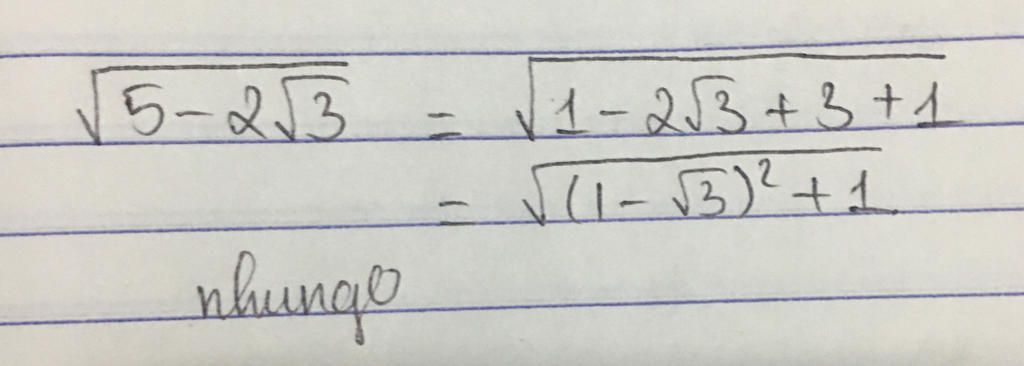 √(5-2√3) = √(1-2√3+3+1)
= √((1-√3)²+1)
nhungo